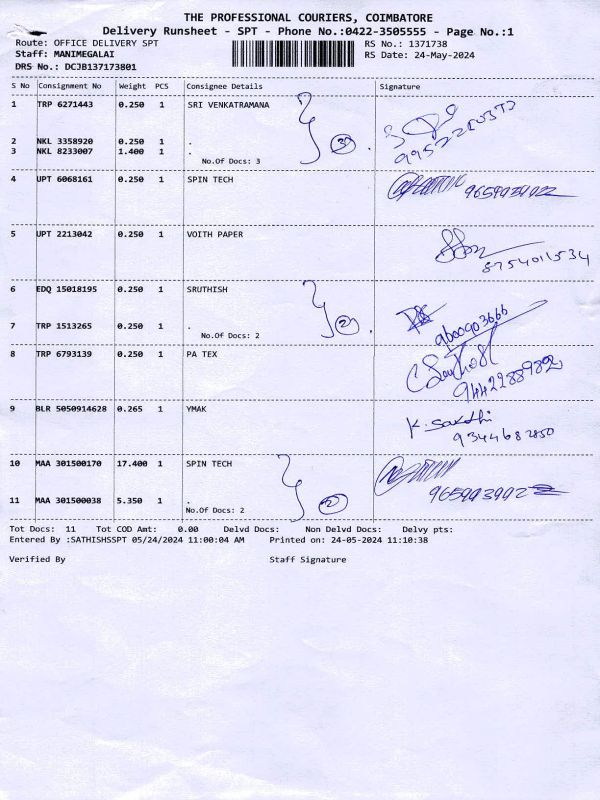 THE PROFESSIONAL COURIERS, COIMBATORE
Delivery Runsheet - SPT - Phone No.:0422-3505555 - Page No.:1
Route: OFFICE DELIVERY SPT
Staff: MANIMEGALAI
DRS No.: DCJB137173801
RS No.: 1371738
RS Date: 24-May-2024
S No Consignment No Weight PCS Consignee Details Signature
1 TRP 6271443 0.250 1 SRI VENKATRAMANA
2 NKL 3358920 0.250 1 .
3 NKL 8233007 1.400 1 .
No.Of Docs: 3
3
4 UPT 6068161 0.250 1 SPIN TECH
5 UPT 2213042 0.250 1 VOITH PAPER
8754011534
6 EDQ 15018195 0.250 1 SRUTHISH
7 TRP 1513265 0.250 1 .
No.Of Docs: 2
2
9600903666
8 TRP 6793139 0.250 1 PA TEX
9442289892
9 BLR 5050914628 0.265 1 YMAK
K. Sakthi
9344682850
10 MAA 301500170 17.400 1 SPIN TECH
11 MAA 301500038 5.350 1 .
No.Of Docs: 2
2
Tot Docs: 11 Tot COD Amt: 0.00 Delvd Docs: Non Delvd Docs: Delvy pts:
Entered By :SATHISHSSPT 05/24/2024 11:00:04 AM Printed on: 24-05-2024 11:10:38
Verified By Staff Signature